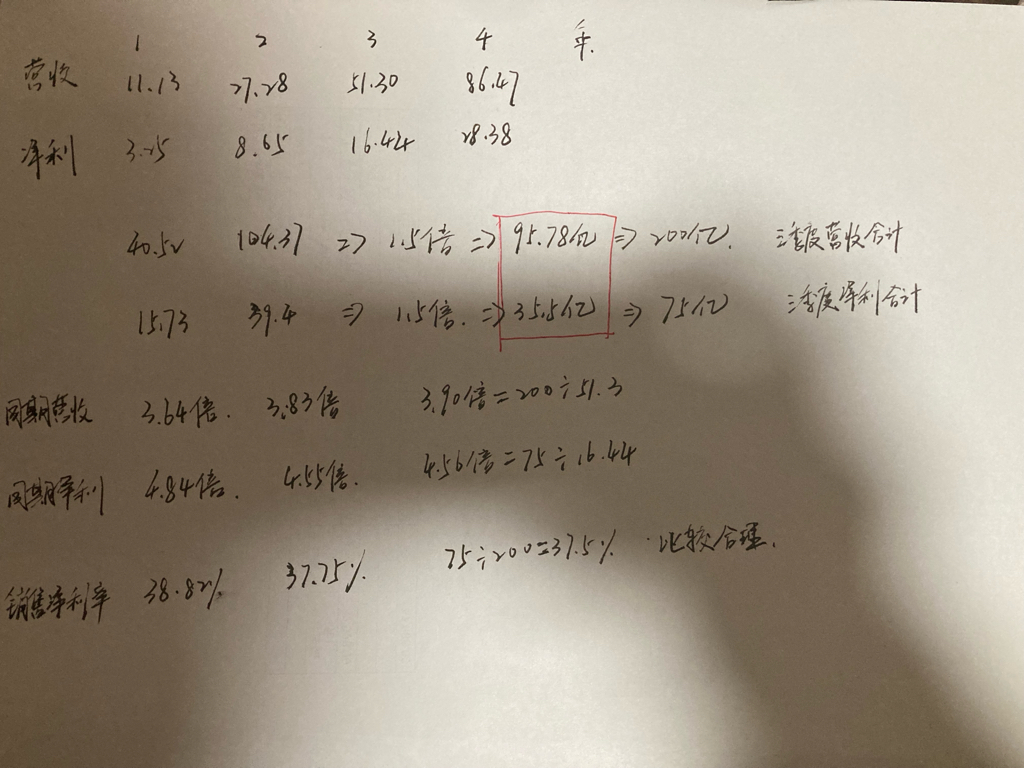 1 2 3 4 年.
营收 11.13 27.28 51.30 86.47
净利 3.25 8.65 16.44 28.38
40.52 104.37 => 1.5倍 => 95.78亿 => 200亿. 三季度营收合计
15.73 39.4 => 1.5倍. => 35.5亿 => 75亿 三季度净利合计
同期营收 3.64倍. 3.83倍 3.90倍=200÷51.3
同期净利 4.84倍. 4.55倍. 4.56倍=75÷16.44
销售净利率 38.82% 37.75% 75÷200=37.5% 比较合理.